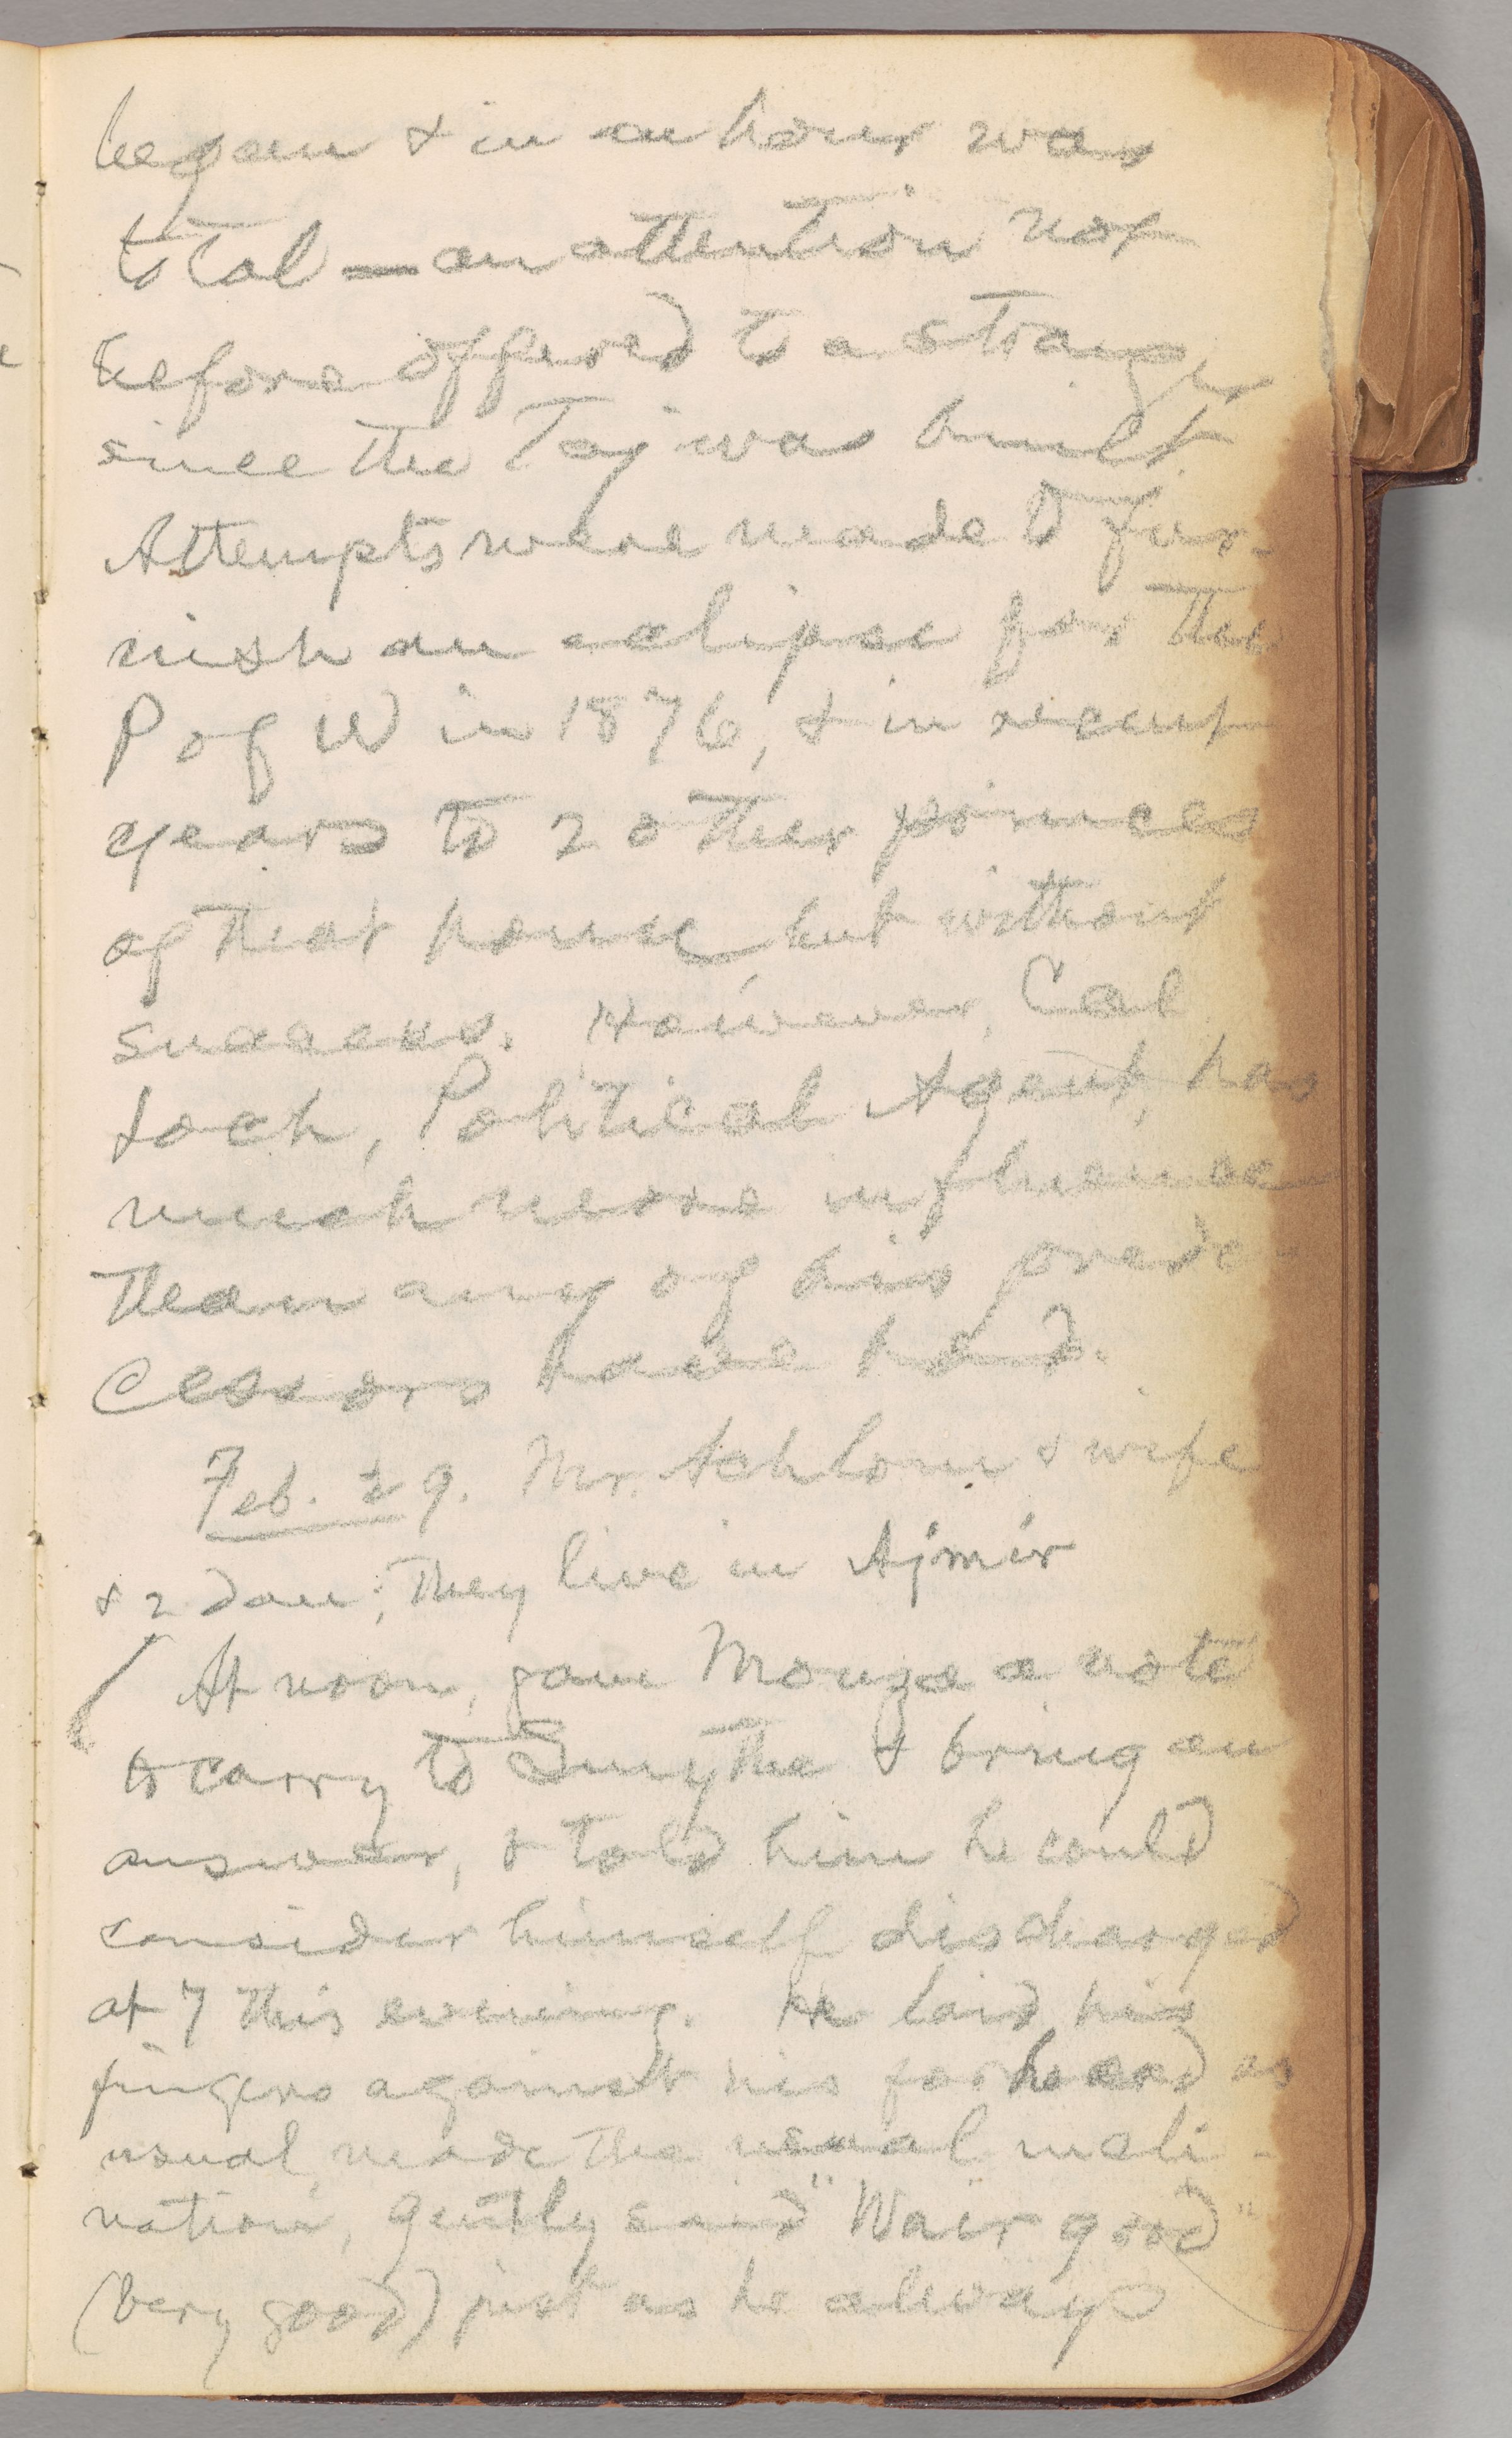 began & in an hour was
total — an attention not
before offered to a stranger
since the Taj was built.
Attempts were made to fur-
nish an eclipse for the
P of W in 1876, & in recent
years to 2 other princes
of that house but without
success. However, Col
Loch, Political Agent, has
much more influence
than any of his prede-
cessors have had.
Feb. 29. Mr. Ashlom & wife
& 2 dau; They live in Ajmir
At noon, gave Mouza a note
to carry to Smythe & bring an
answer, & told him he could
consider himself discharged
at 7 this evening. He laid his
fingers against his forhead as
usual, made the usual incli-
nation, gently said "Wair good"
(very good) just as he always